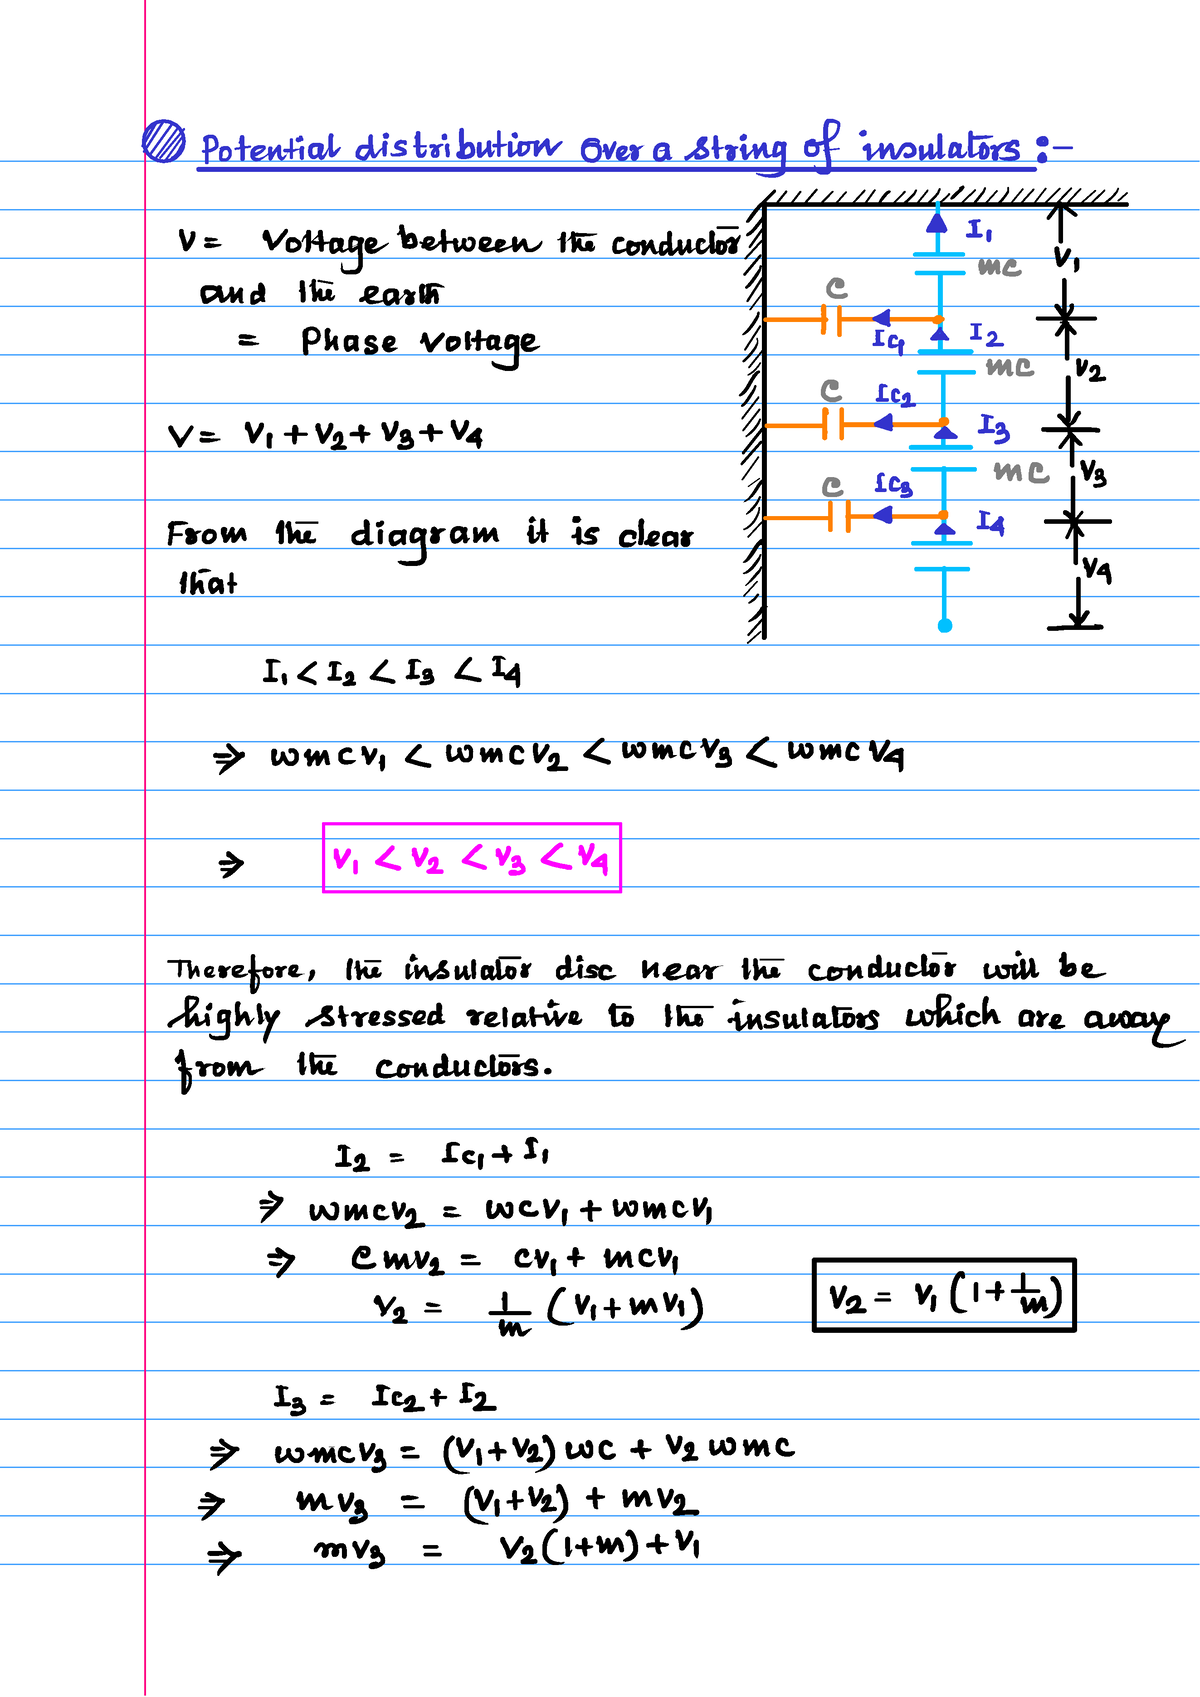 Potential distribution over a string of insulators :-
V = Voltage between the conductor
and the earth
= Phase voltage
V = V₁ + V₂ + V₃ + V₄
From the diagram it is clear
that
I₁
mc
V₁
C
Ic₁
I₂
mc
V₂
C
Ic₂
I₃
mc
V₃
C
Ic₃
I₄
V₄
I₁ < I₂ < I₃ < I₄
⇒ ωmcv₁ < ωmcv₂ < ωmcv₃ < ωmcv₄
⇒ V₁ < V₂ < V₃ < V₄
Therefore, the insulator disc near the conductor will be
highly stressed relative to the insulators which are away
from the conductors.
I₂ = Ic₁ + I₁
⇒ ωmcv₂ = ωcv₁ + ωmcv₁
⇒ cmv₂ = cv₁ + mcv₁
v₂ = 1/m (v₁ + mv₁)
V₂ = V₁ (1 + 1/m)
I₃ = Ic₂ + I₂
⇒ ωmcv₃ = (V₁+V₂) ωc + V₂ ωmc
⇒ mv₃ = (V₁+V₂) + mv₂
⇒ mv₃ = V₂(1+m) + V₁